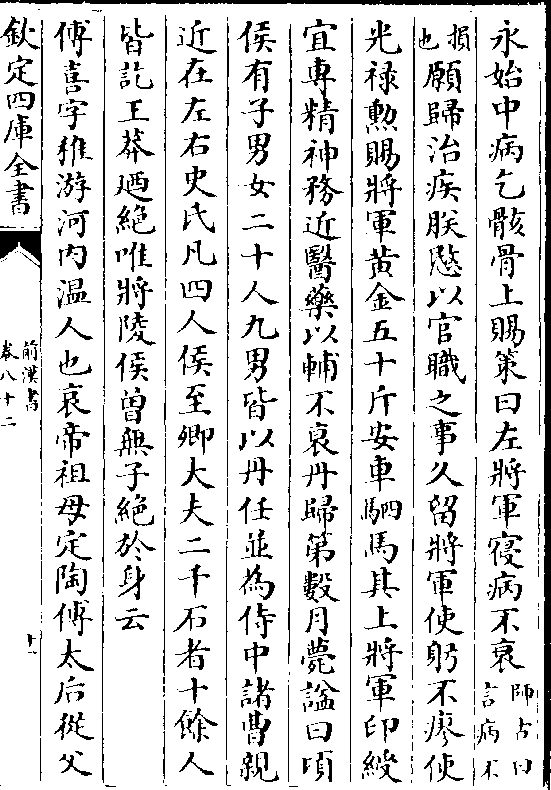 永始中病乞骸骨上賜策曰左將軍寢病不衰師古曰言病不
損也願歸治疾朕愍以官職之事久留將軍使躬不瘳使
光祿勲賜將軍黄金五十斤安車駟馬其上將軍印綬
宜專精神務近醫藥以輔不衰丹歸第數月薨諡曰頃
侯有子男女二十人九男皆以丹任並為侍中諸曹親
近在左右史氏凡四人侯至卿大夫二千石者十餘人
皆訖王莽廼絶唯將陵侯曾無子絶於身云
傅喜字稚游河内温人也哀帝祖母定陶傅太后從父
欽定四庫全書
前漢書
卷八十二
十一